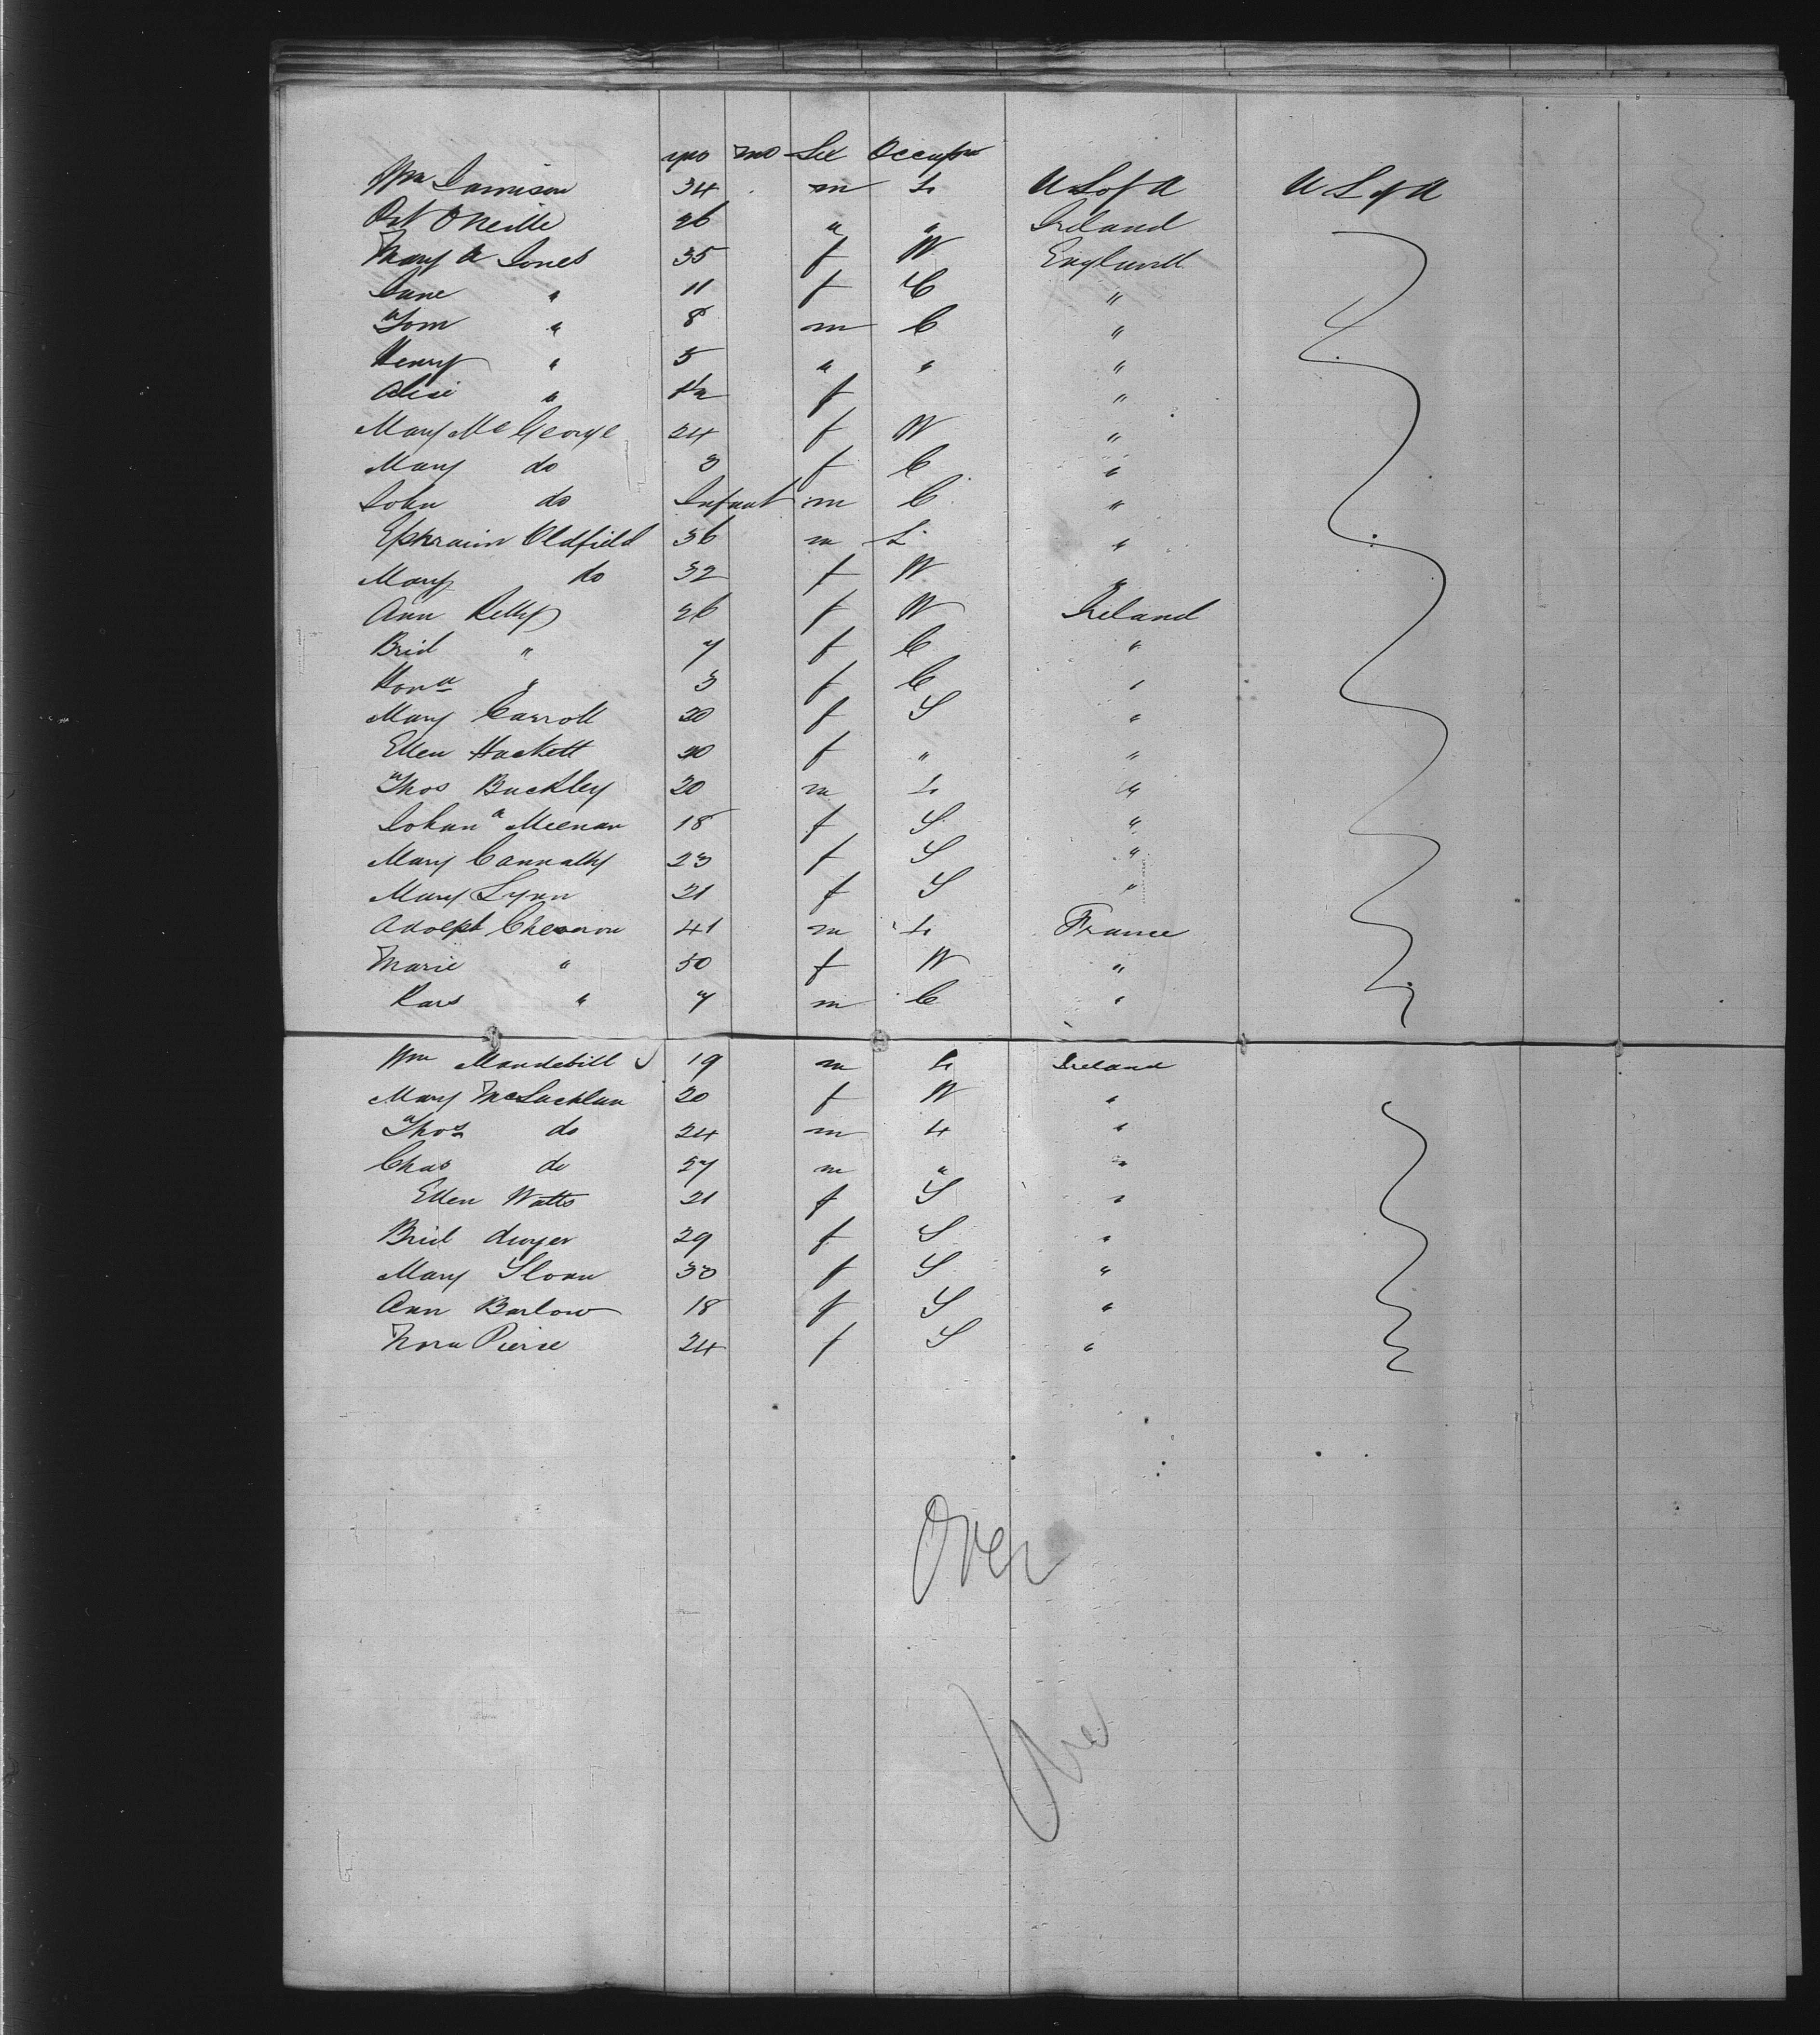 yrs mo Sex Occupn
Wm Jamison 34 m L U S of A U S of A
Pat O Neille 26 " " Ireland
Mary A Jones 35 f W England
Jane " 11 f C "
Tom " 8 m C "
Henry " 5 " " "
Alise " f "
Mary Mc George 24 f W "
Mary do 3 f C "
John do Infant m C "
Ephraim Oldfield 36 m L "
Mary do 32 f W "
Ann Kelly 26 f W Ireland
Brid " 7 f C "
Hona " 3 f C "
Mary Carroll 20 f S "
Ellen Hackett 20 f " "
Thos Buckley 20 m L "
Johana Meenan 18 f S "
Mary Cannalty 23 f S "
Mary Lynn 21 f S "
Adolph 41 m L France
Marie " 50 f W "
" 7 m C "
Wm Mandebill 19 m L Ireland
Mary McLachlan 20 f W "
Thos do 24 m L "
Chas do 27 m " "
Ellen Watts 21 f S "
Brid dwyer 29 f S "
Mary Sloan 30 f S "
Ann Barlow 18 f S "
Nora Pierse 24 f S "
Over